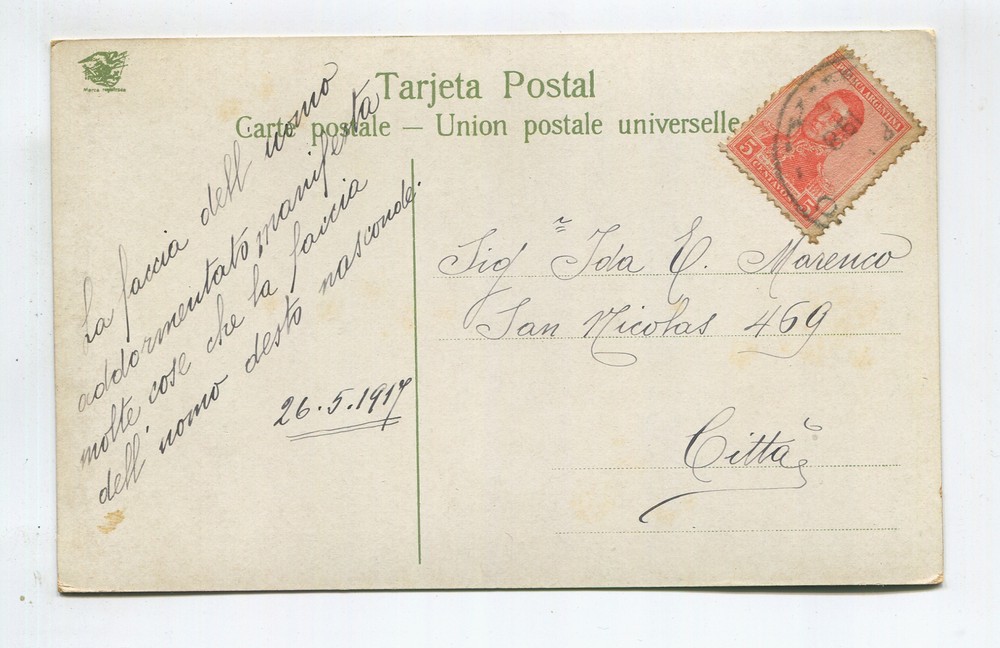 Marca registrada
Tarjeta Postal
Carte postale — Union postale universelle
REPUBLICA ARGENTINA
5 CENTAVOS 5
La faccia dell'uomo
addormentato, manifesta
molte cose che la faccia
dell'uomo desto nasconde.
26.5.1917
Sigñ Ida E. Marenco
San Nicolas 469
Città